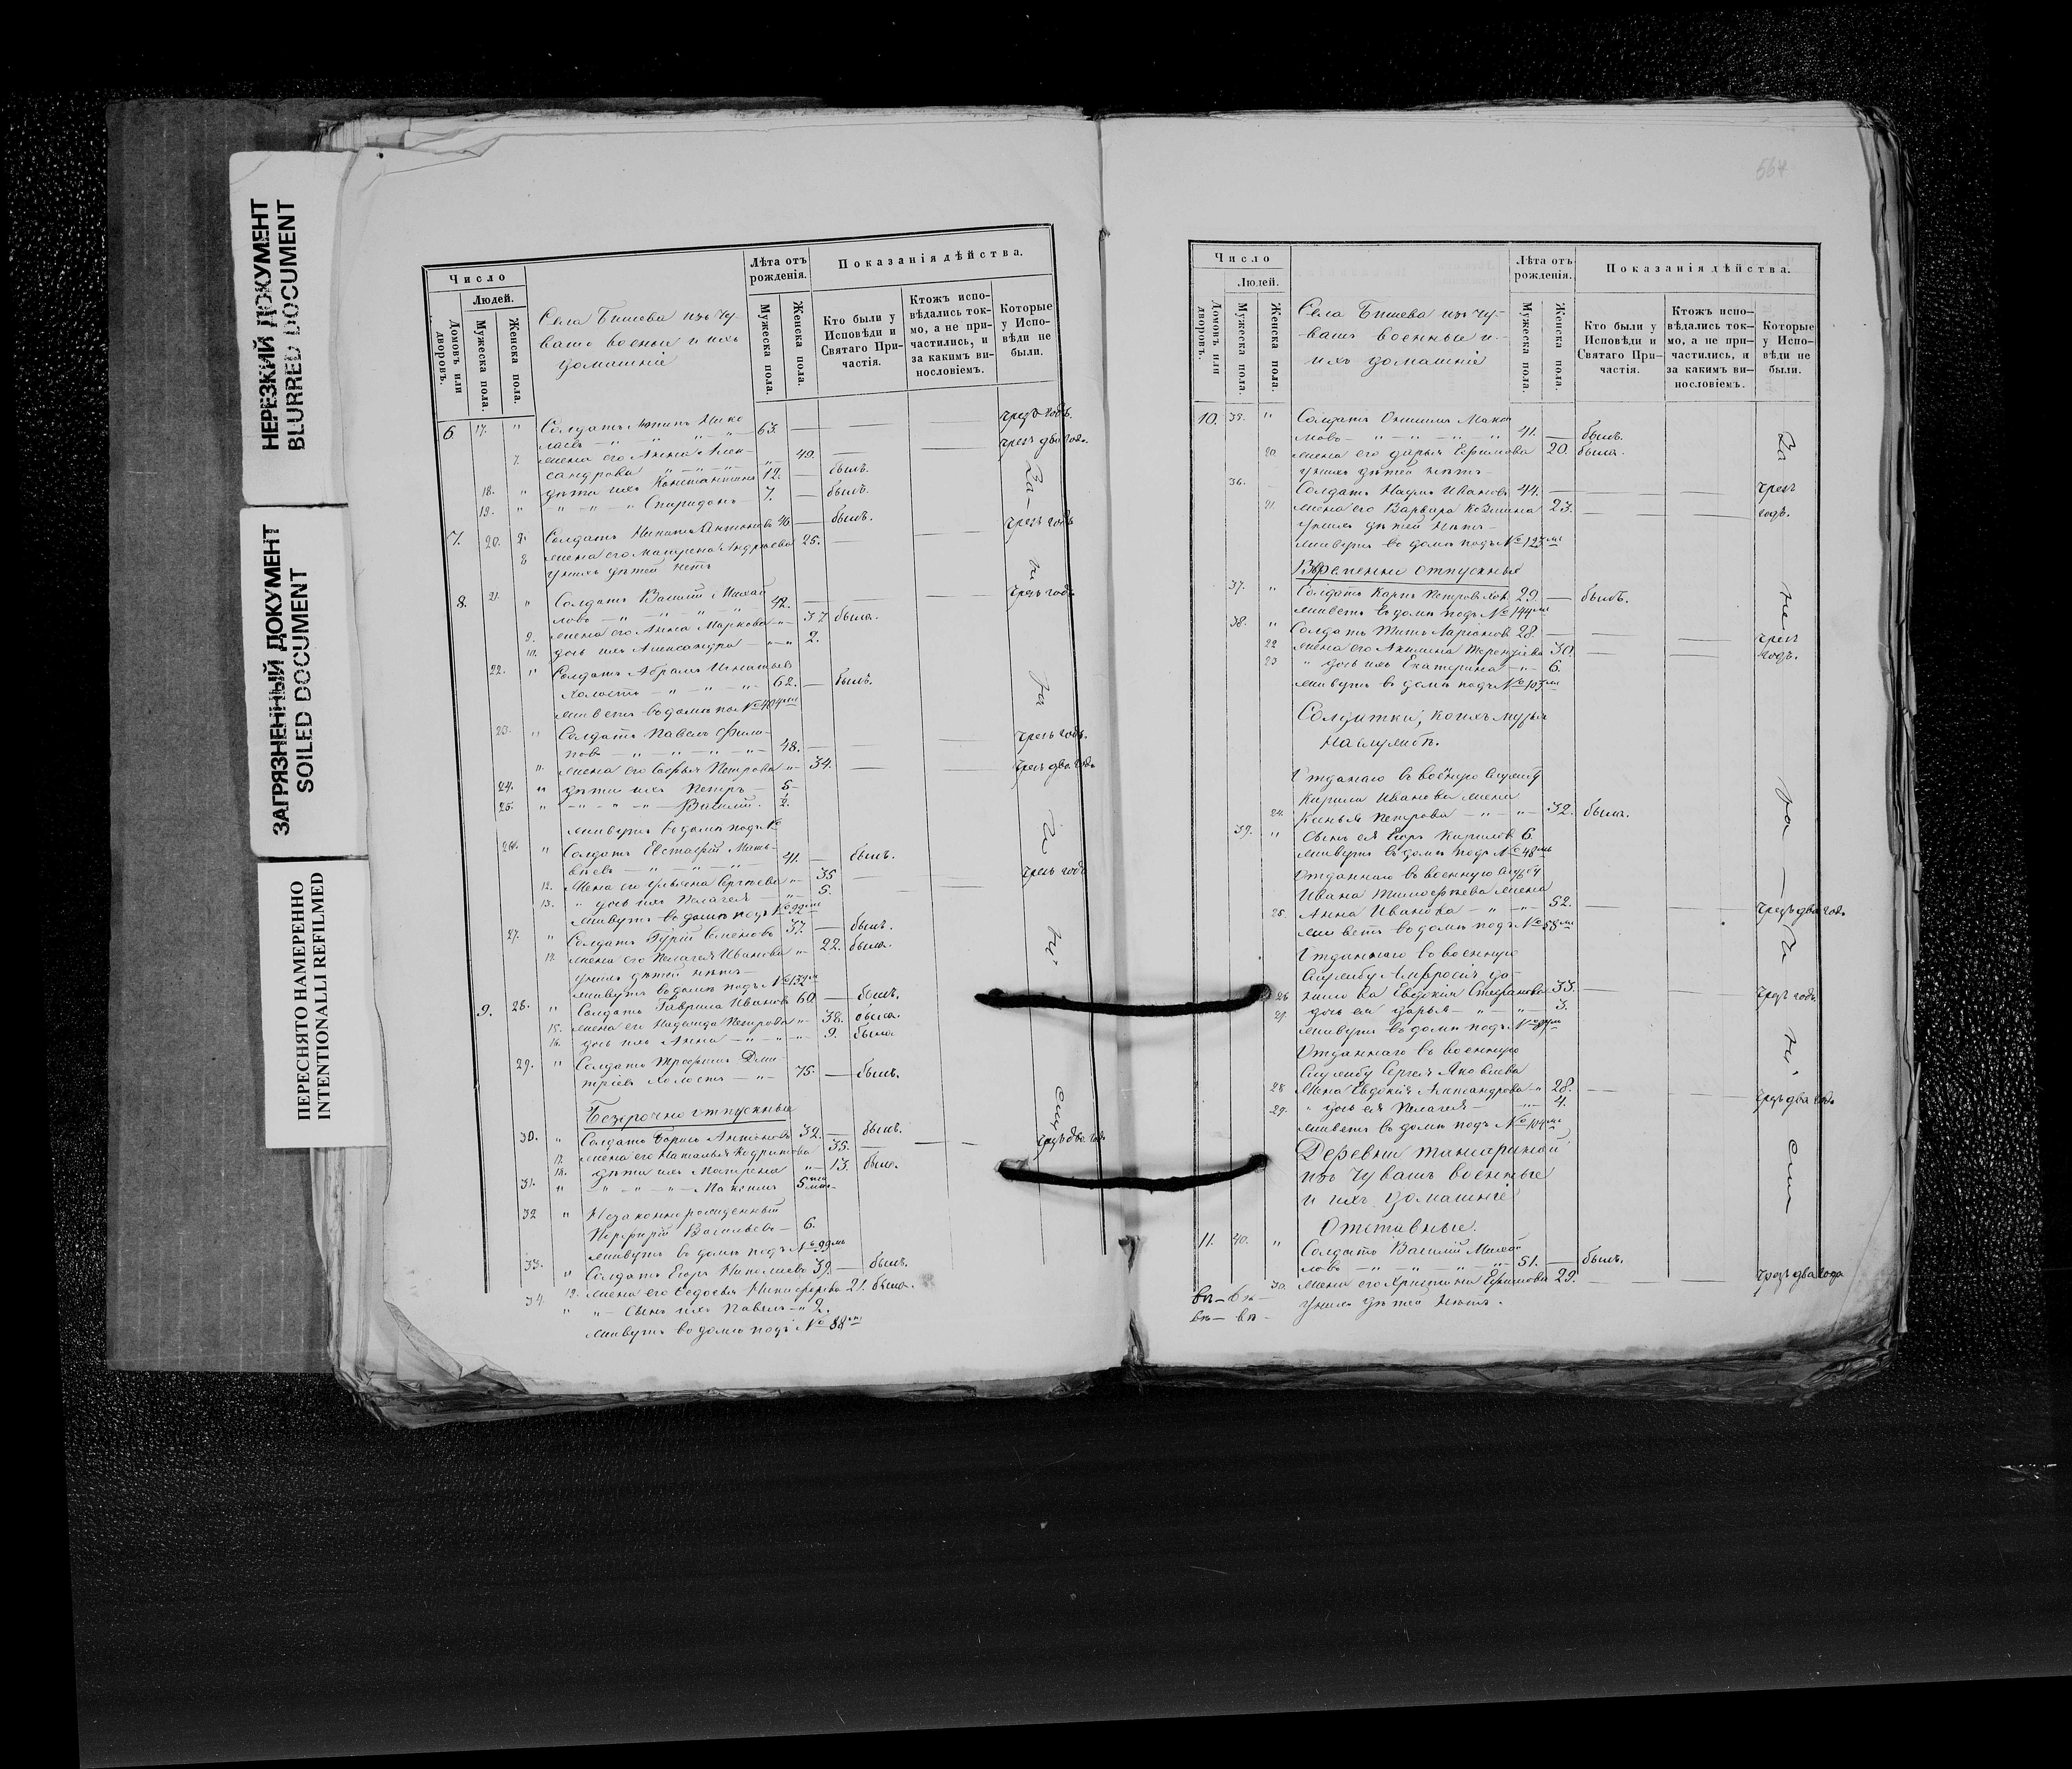 НЕРЕЗКИЙ ДОКУМЕНТ
BLURRED DOCUMENT
ЗАГРЯЗНЕННЫЙ ДОКУМЕНТ
SOILED DOCUMENT
ПЕРЕСНЯТО НАМЕРЕННО
INTENTIONALLI REFILMED
Число
Людей.
Домовъ или дворовъ.
Мужеска пола.
Женска пола.
Села Бишева изъ чу-
вашъ военные и ихъ
домашніе
Лѣта отъ
рожденія.
Мужеска пола.
Женска пола.
Показанія дѣйства.
Кто были у
Исповѣди и
Святаго При-
частія.
Ктожъ испо-
вѣдались ток-
мо, а не при-
частились, и
за какимъ ви-
нословіемъ.
Которые
у Испо-
вѣди не
были.
6 17. " Солдатъ Нико 63. — чрезъ годъ.
7. жена его Анна Алек-
сандрова 49. — чрезъ два года.
18. " дѣти ихъ Константинъ 12. — былъ.
19. " Спиридонъ 7. — былъ.
7. 20. Солдатъ Никита Антоновъ 46. — былъ.
8 жена его Матрена Андреева 25. — чрезъ годъ
у нихъ дѣтей нетъ
8. 21. " Солдатъ Василій Михай
ловъ 42. — чрезъ годъ
9. жена его Анна Маркова 37 была.
10. дочь ихъ Александра 2.
22. " Солдатъ Абрамъ Игнатьевъ
Холостъ 62. — былъ.
живетъ въ домѣ
23. " Солдатъ Павелъ Фили-
повъ 48. — чрезъ годъ.
". жена его Софья Петрова 34. — чрезъ два года
24. " дѣти ихъ Петръ 5
25. " Василій 2.
живутъ въ домѣ подъ №
26. " Солдатъ Евстафій Матв-
ѣевъ 41. — былъ.
12. жена его Ульяна Сергѣева 35 — чрезъ годъ
13. " дочь ихъ Пелагея 5.
живутъ въ домѣ подъ № 92
27. " Солдатъ Гурій Семеновъ 37. — былъ.
14. жена его Пелагея Иванова 22. была.
у нихъ дѣтей нѣтъ
живутъ въ домѣ подъ № 132
9. 28. " Солдатъ Гаврила Ивановъ 60 — былъ.
15. жена его Надежда Петрова 38. была.
16. дочь ихъ Анна 9. была.
29. " Солдатъ Трофимъ Дми-
тріевъ Холостъ 75. — былъ.
Безсрочно отпускные
30. " Солдатъ Борисъ Антоновъ 32. — былъ.
17. жена его Наталья 35. — чрезъ два года
18. дѣти ихъ Матрена 13. была.
31. " Максимъ 5
32 " Незаконнорожденный
Порфирій Васильевъ 6.
живутъ въ домѣ подъ № 99
33. " Солдатъ Егоръ Николаевъ 39. — былъ.
19. жена его Федосья Никифорова 21. была.
34. " " сынъ ихъ Павелъ 2.
живутъ въ домѣ подъ № 88
564
Число
Людей.
Домовъ или дворовъ.
Мужеска пола.
Женска пола.
Села Бишева изъ чу-
вашъ военные и
ихъ домашніе
Лѣта отъ
рожденія.
Мужеска пола.
Женска пола.
Показанія дѣйства.
Кто были у
Исповѣди и
Святаго При-
частія.
Ктожъ испо-
вѣдались ток-
мо, а не при-
частились, и
за какимъ ви-
нословіемъ.
Которые
у Испо-
вѣди не
были.
10. 35. " Солдатъ Онисимъ Макси
мовъ 41. — былъ.
20. жена его Дарья Ефимова 20. была.
у нихъ дѣтей нѣтъ
36. Солдатъ Наумъ Ивановъ 44. — чрезъ
21. жена его Варвара Козмина 23. — годъ.
у нихъ дѣтей нѣтъ
живутъ въ домѣ подъ № 123
Временно отпускные
37. " Солдатъ Карпъ Петровъ хол. 29. — былъ.
живетъ въ домѣ подъ № 144
38. " Солдатъ Титъ Ларіоновъ 28. — чрезъ
22 жена его Акилина Терентіева 30. — годъ.
23 " дочь ихъ Екатерина 6.
живутъ въ домѣ подъ № 103
Солдатки, коихъ мужья
на службѣ.
Отданаго въ военную службу
Кирила Иванова жена
24. Ксенья Петрова 32. была.
39. " сынъ ея Егоръ Кириловъ 6.
живутъ въ домѣ подъ № 48
Отданнаго въ военную службу
Ивана Тимофѣева жена
25. Анна Иванова 52. — чрезъ два года
живетъ въ домѣ подъ № 58
Отданнаго въ военную
службу Амвросія Да-
26. нилова Евдокія Стефанова 33. — чрезъ годъ
27. дочь ея Дарья 3.
живутъ въ домѣ подъ №
Отданнаго въ военную
службу Сергея Яковлева
28. жена Евдокія Александрова 28. — чрезъ два года
29. " дочь ея Пелагея 4.
живетъ въ домѣ подъ № 104
Деревни
изъ Чувашъ военные
и ихъ домашніе
Отставные.
11. 40. " Солдатъ Василій Михай
ловъ 51. — былъ.
30. жена его Христина Ефимова 29. — чрезъ два года
у нихъ дѣтей нѣтъ.